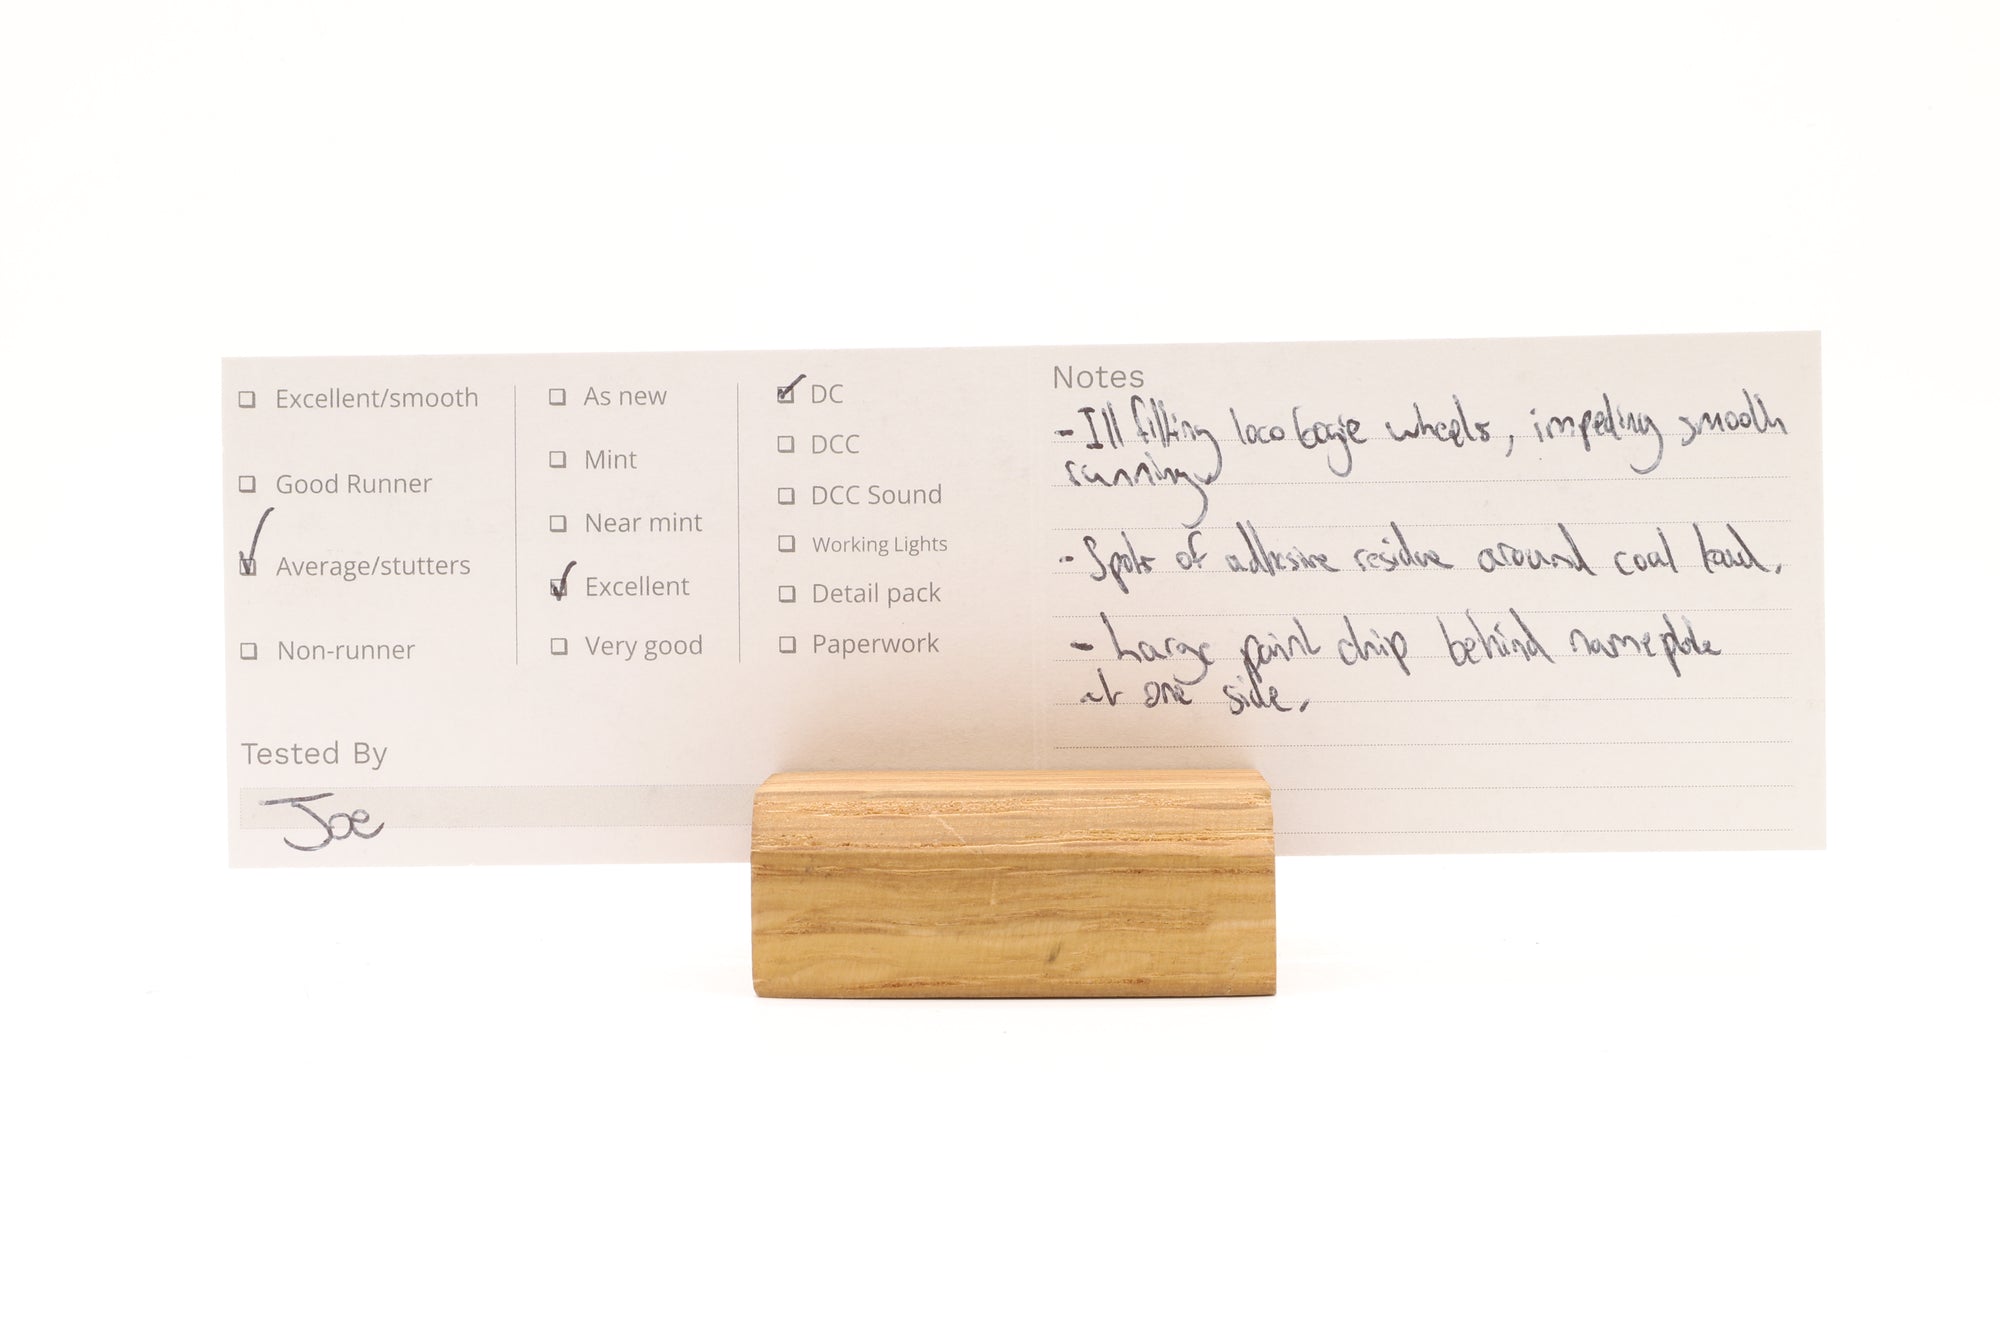 Excellent/smooth
Good Runner
Average/stutters
Non-runner
As new
Mint
Near mint
Excellent
Very good
DC
DCC
DCC Sound
Working Lights
Detail pack
Paperwork
Tested By
Joe
Notes
- Ill fitting loco bogie wheels, impeding smooth
running
- Spots of adhesive residue around coal load.
- Large paint chip behind nameplate
at one side.